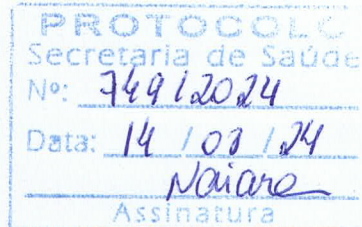 PROTOCOLO
Secretaria de Saúde
Nº: 749/2024
Data: 14 / 03 / 24
Naiara
Assinatura